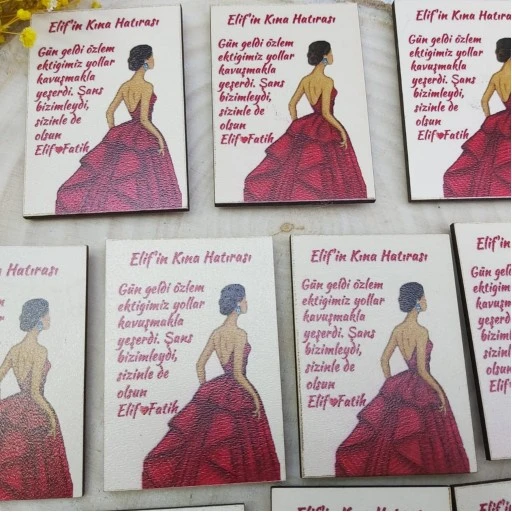 Elif'in Kına Hatırası
Gün geldi özlem
ektigimiz yollar
kavuşmakla
yeşerdi. Şans
bizimleydi,
sizinle de
olsun
Elif❤Fatih
Elif'in Kına Hatırası
Gün geldi özlem
ektigimiz yollar
kavuşmakla
yeşerdi. Şans
bizimleydi,
sizinle de
olsun
Elif❤Fatih
Elif'in Kına Hatırası
Gün geldi özlem
ektigimiz yollar
kavuşmakla
yeşerdi. Şans
bizimleydi,
sizinle de
olsun
Elif❤Fatih
Hatırası
Elif'in Kına Hatırası
Gün geldi özlem
ektigimiz yollar
kavuşmakla
yeşerdi. Şans
bizimleydi,
sizinle de
olsun
Elif❤Fatih
Elif'in Kına Hatırası
Gün geldi özlem
ektigimiz yollar
kavuşmakla
yeşerdi. Şans
bizimleydi,
sizinle de
olsun
Elif❤Fatih
Elif'in
Gün
olsun
Elif